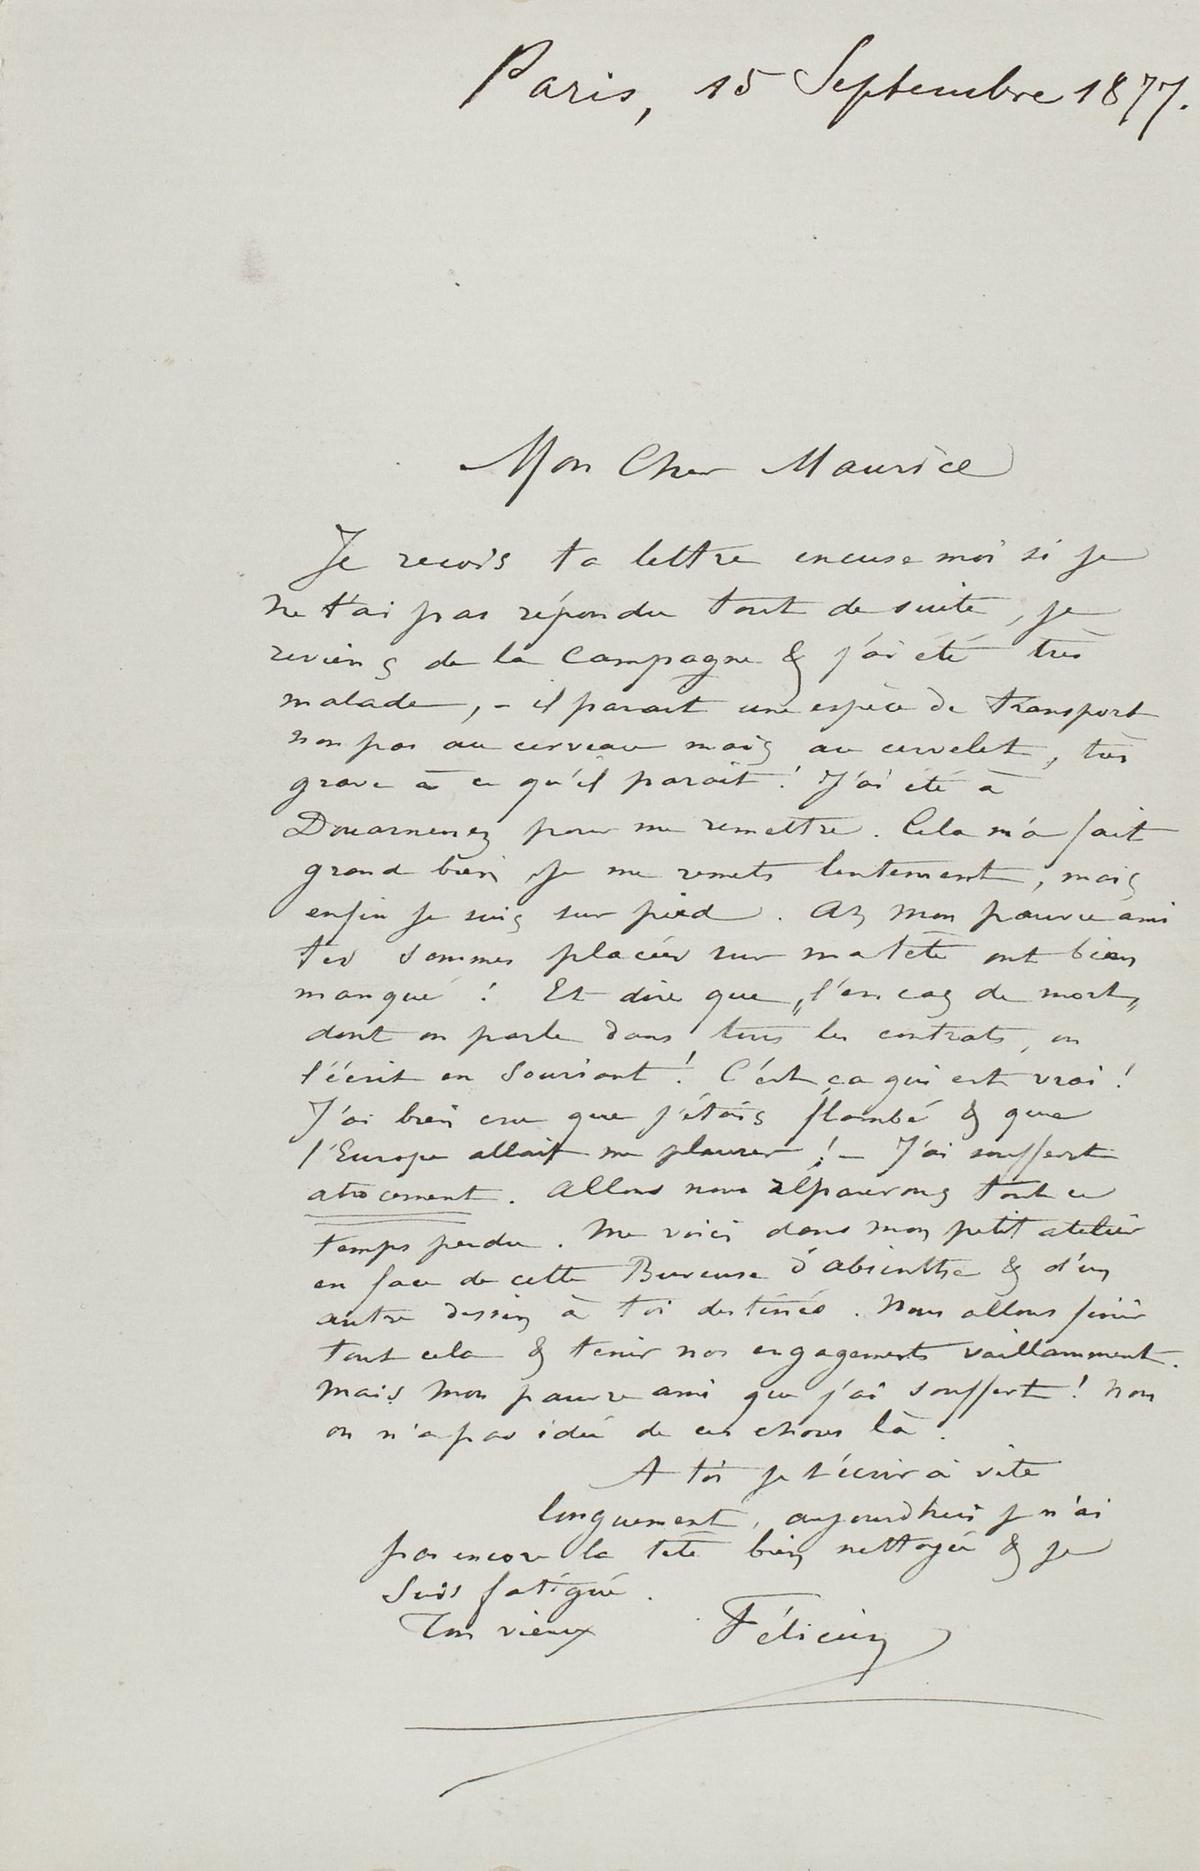 Paris, 15 Septembre 1877.
Mon Cher Maurice
Je reçois ta lettre excuse moi si je
ne t'ai pas répondu tout de suite, je
reviens de la campagne & j'ai été très
malade, – il parait une espèce de transport
non pas au cerveau mais au cervelet, très
grave à ce qu'il parait! J'ai été à
Douarnenez pour me remettre. Cela m'a fait
grand bien je me remets lentement, mais
enfin je suis sur pied. Ah mon pauvre ami
tes sommes placées sur ma tête ont bien
manqué! Et dire que „l'en cas de mort„
dont on parle dans tous les contrats, on
l'écrit en souriant! C'est ça qui est vrai!
J'ai bien cru que j'étais flambé & que
l'Europe allait me pleurer! – J'ai souffert
atrocement. Allons nous réparerons tout ce
temps perdu. Me voici dans mon petit atelier
en face de cette Buveuse d'absinthe & d'un
autre dessin à toi destinés. Nous allons finir
tout cela & tenir nos engagements vaillamment.
Mais mon pauvre ami que j'ai souffert! non
on n'a pas idée de ces choses là.
A toi je t'écrirai vite
longuement, aujourdhui je n'ai
pas encore la tête bien nettoyée & je
suis fatigué.
Ton vieux Félicien